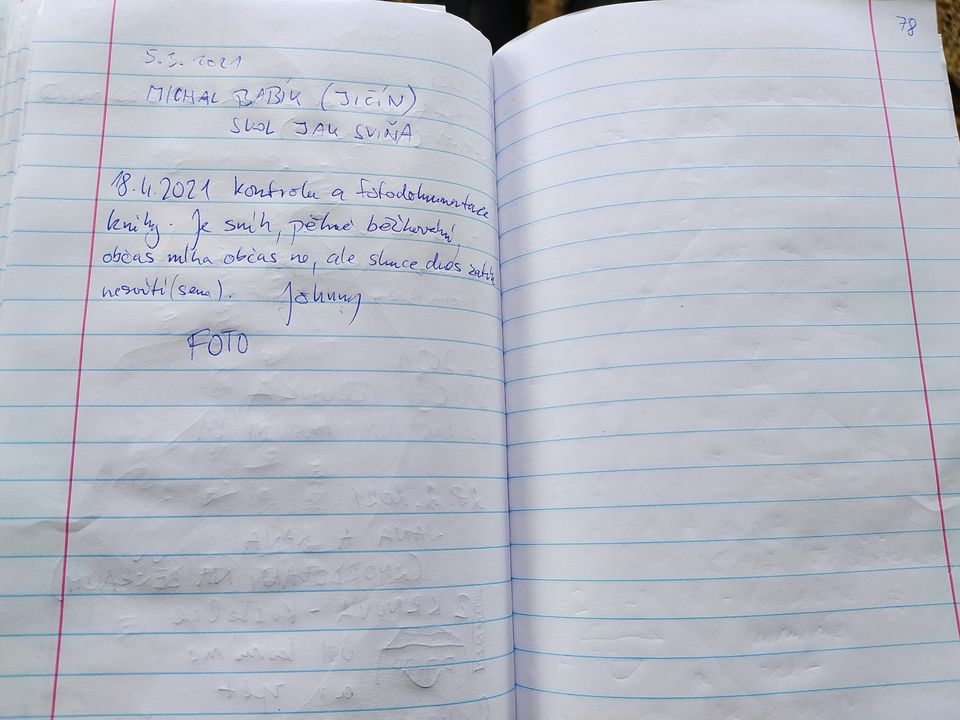 5.3.2021
MICHAL BABÍK (JIČÍN)
SKOL JAK SVIŇA
18.4.2021 kontrola a fotodokumentace
knihy. Je sníh, pěkné běžkování,
občas mlha občas ne, ale slunce dnes zatím
nesvítí
Johnny
FOTO
78